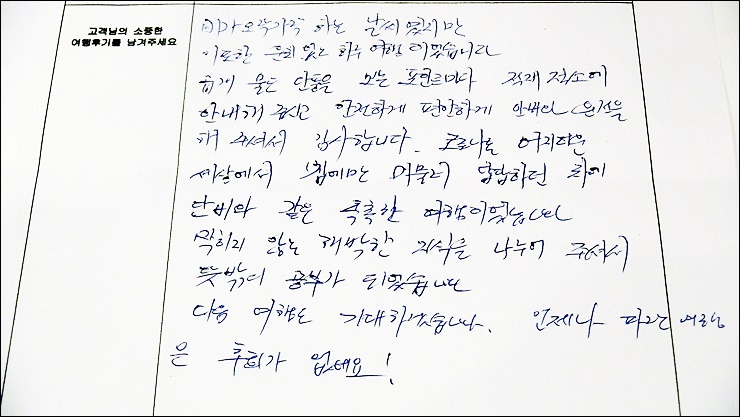 고객님의 소중한
여행후기를 남겨주세요
비가 오락가락 하는 날씨 였지만
지루할 틈이 없는 하루 여행 이었습니다
곱게 물든 단풍을 보는 포인트마다 적재 적소에
안내해 주시고 안전하게 편안하게 안내와 운전을
해 주셔서 감사합니다. 코로나로 어지러운
세상에서 집에만 머물러 답답하던 차에
단비와 같은 촉촉한 여행이었습니다
막히지 않는 해박한 지식을 나누어 주셔서
뜻밖의 공부가 되었습니다
다음 여행도 기대하겠습니다. 언제나 따라
은 후회가 없네요!